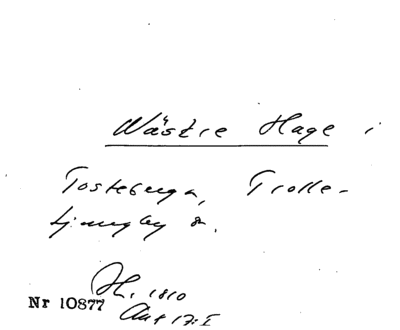 Wästre Hage i
Tosteberga, Trolle-
ljungby s.
H. 1810
Nr 10877
Aut 17:I